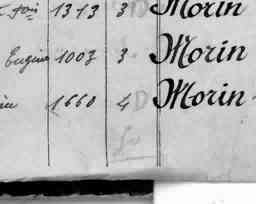 1313 3 D Morin
Eugène 1003 3 Morin
1660 4 D Morin